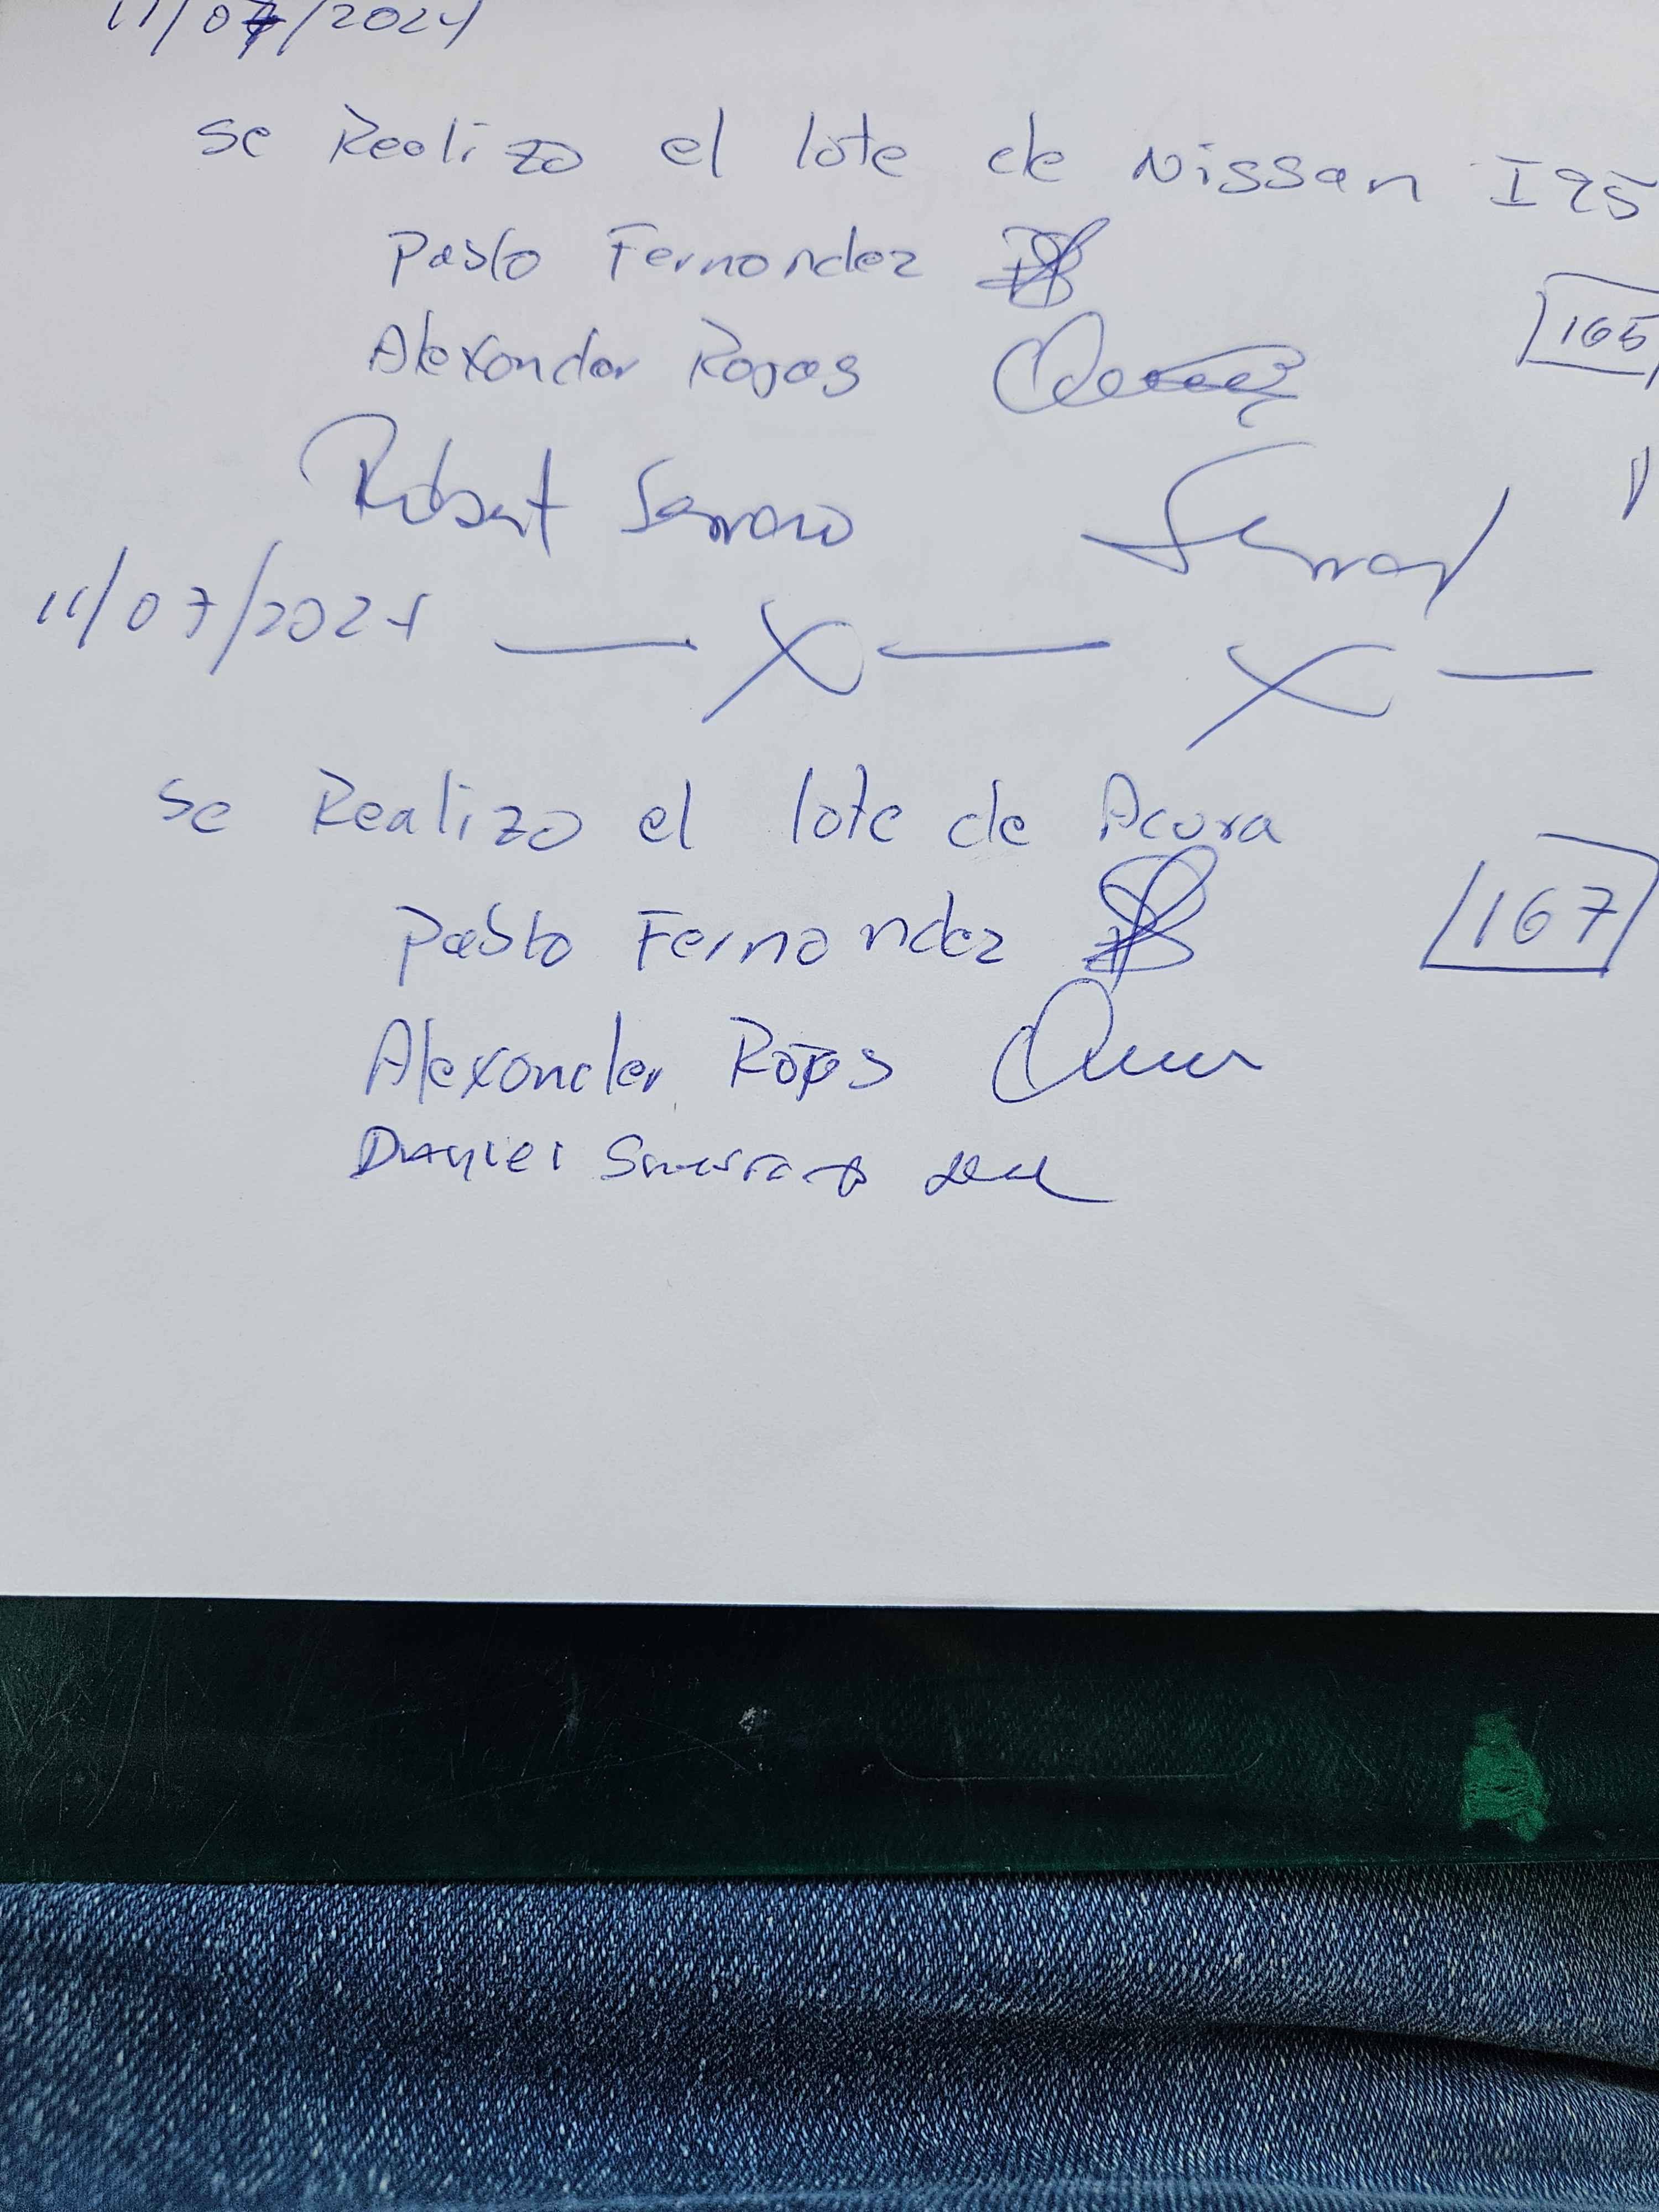 11/07/2024
se Realizo el lote de Nissan I95
Pablo Fernandez
165
Alexander Rojas
Robert Serrano
11/07/2024 — X — X —
se Realizo el lote de Acura
Pablo Fernandez
167
Alexander Rojas
Daniel